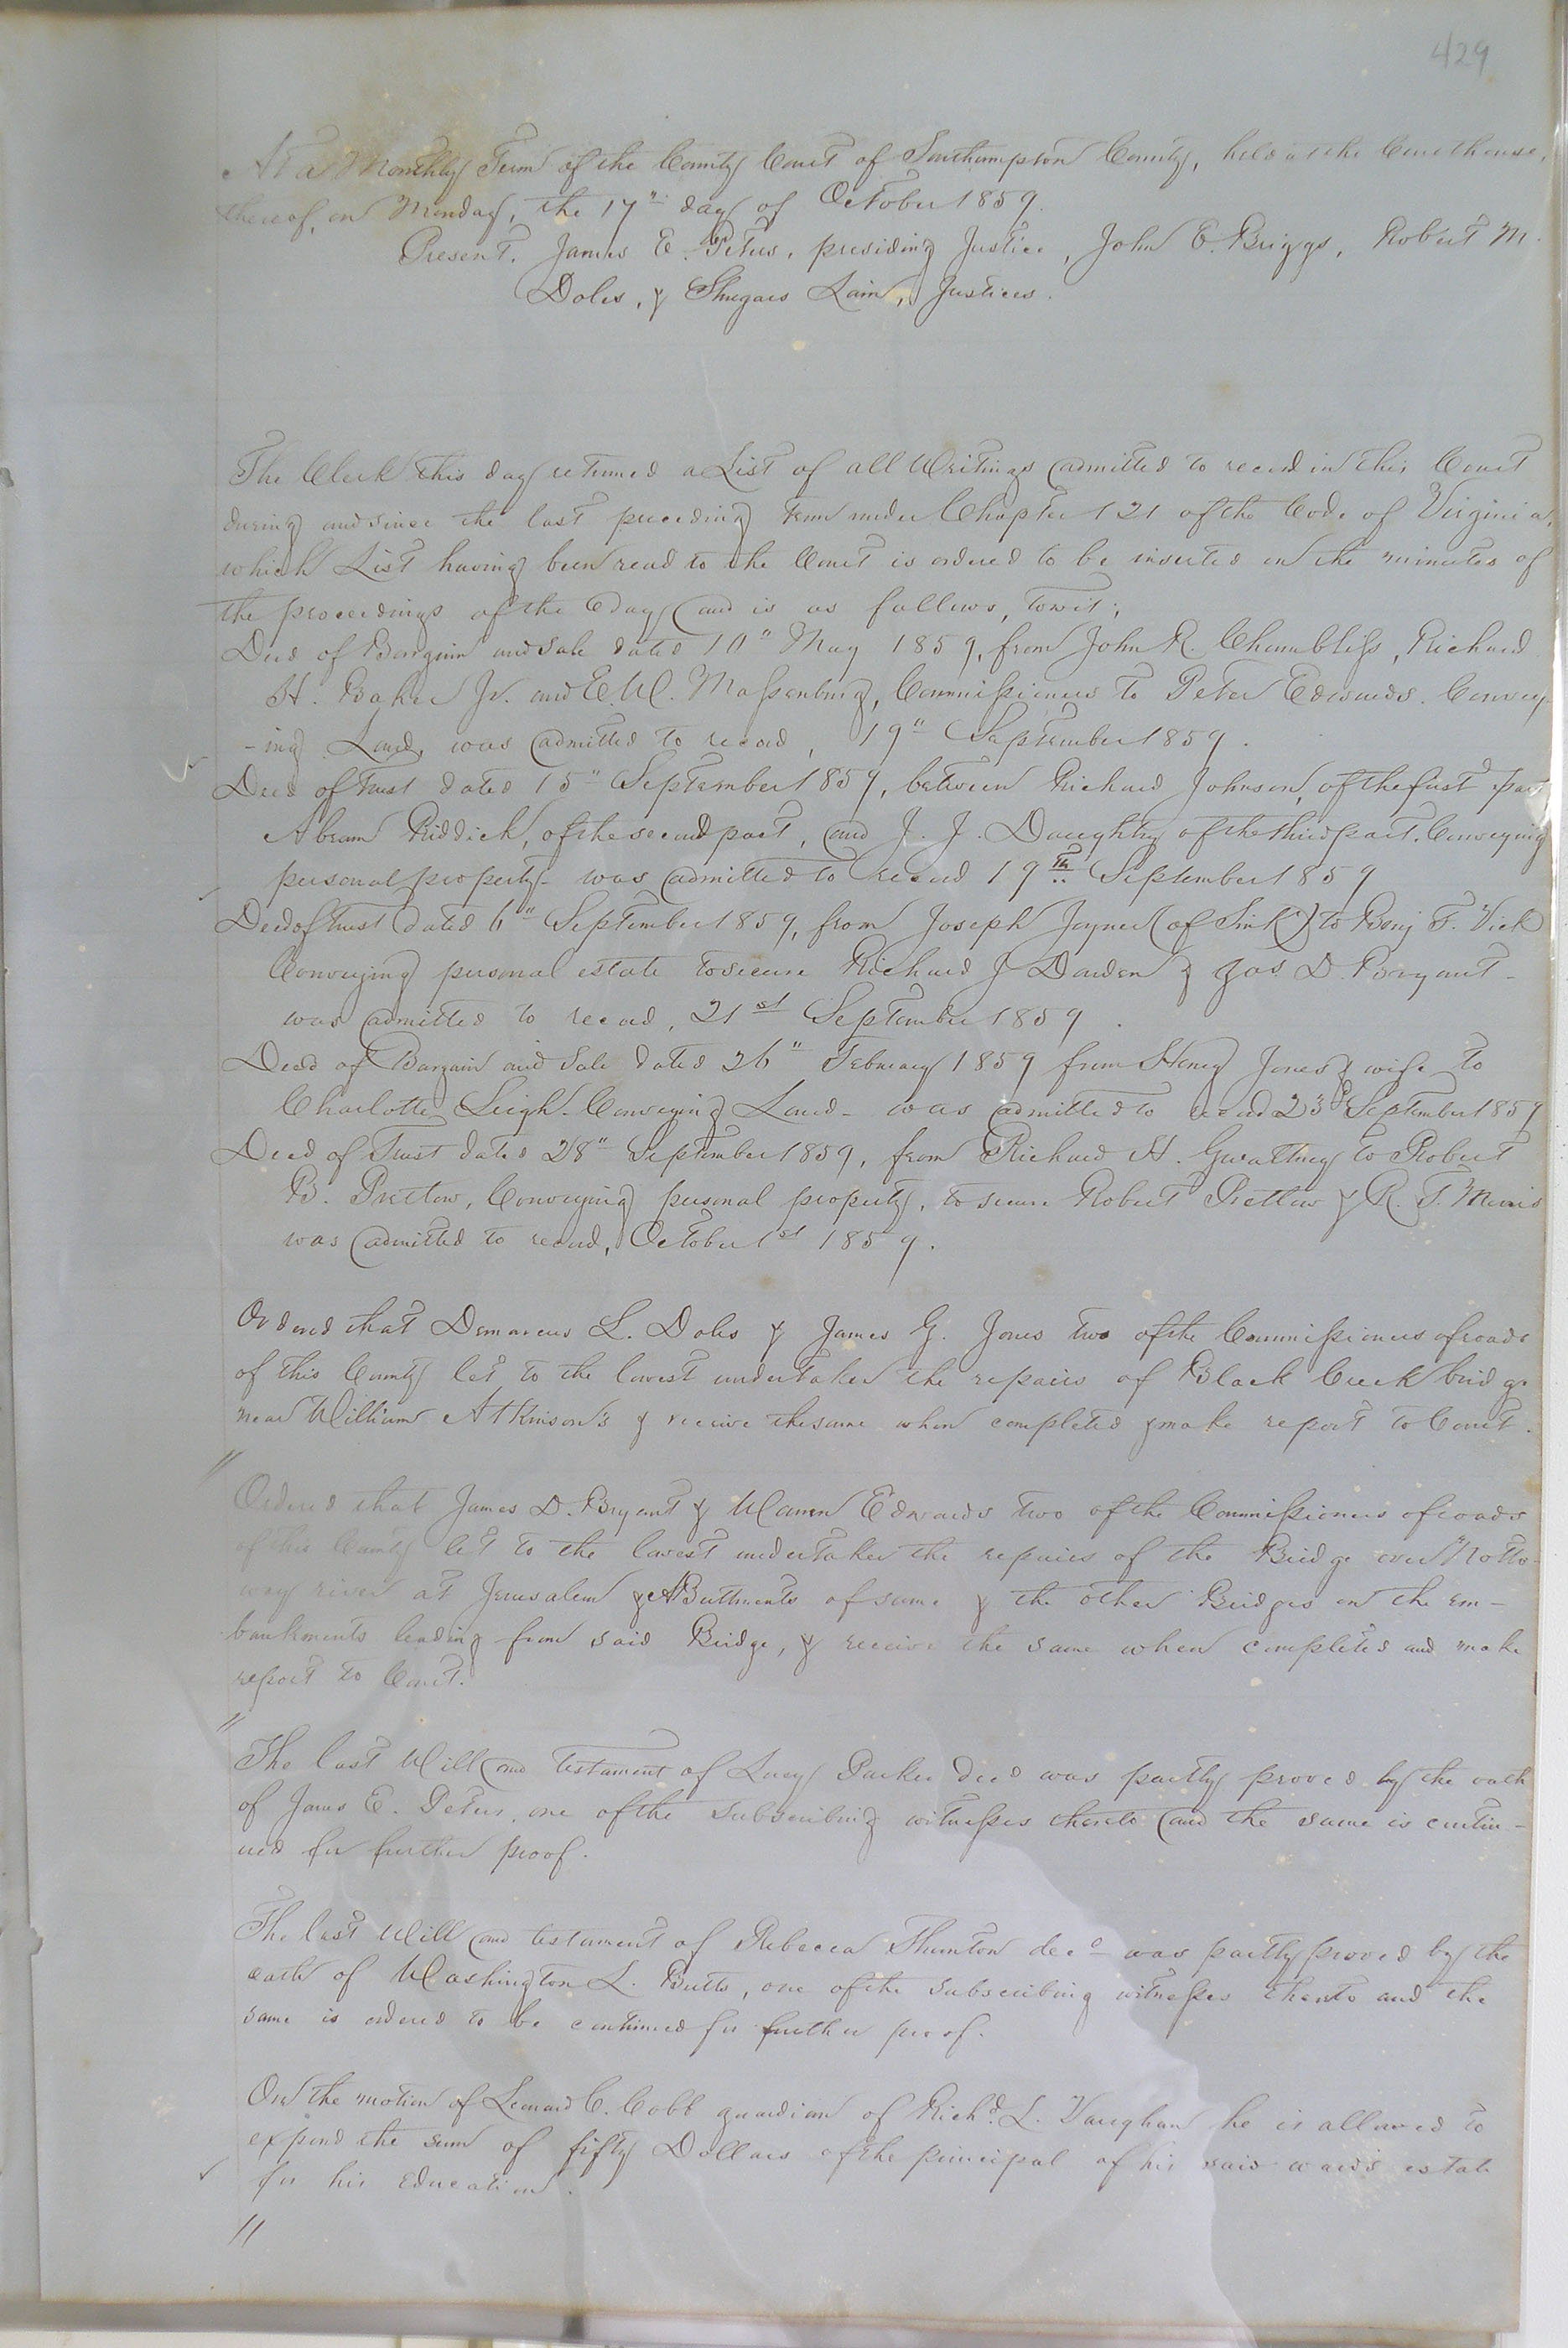 429
At a Monthly Term of the County Court of Southampton County, held at the Courthouse,
thereof, on Monday, the 17" day of October 1859.
Present. James E. Peters, presiding Justice, John E. Briggs, Robert M.
Doles, & Shugars Lain, Justices.
The Clerk this day returned a List of all Writings admitted to record in this Court
during and since the last preceding term under Chapter 121 of the Code of Virginia,
which List having been read to the Court is ordered to be inserted in the minutes of
the proceedings of the day and is as follows, towit;
Deed of Bargain and Sale dated 10" May 1859, from John R. Chambliss, Richard
H. Baker Jr. and E. W. Massenburg, Commissioners to Peter Edwards. Convey
-ing Land, was admitted to record, 19" September 1859.
Deed of trust dated 15" September 1859, between Richard Johnson, of the first part
Abram Riddick, of the second part, and J. J. Daughtry of the third part. Conveying
personal property - was admitted to record 19th September 1859
Deed of trust dated 6" September 1859, from Joseph Joyner (of Sink) to Benj F. Vick
Conveying personal estate to secure Richard J Darden & Jas. D. Bryant -
was admitted to record, 21st September 1859.
Deed of Bargain and Sale dated 26" February 1859 from Henry Jones & wife to
Charlotte Leigh - Conveying Land - was admitted to record 23d September 1859
Deed of Trust dated 28" September 1859, from Richard H. Gwaltney to Robert
B. Pretlow, Conveying personal property, to secure Robert Pretlow & R. T. Morris
was admitted to record, October 1st 1859.
Ordered that Demarcus L. Doles & James G. Jones two of the Commissioners of roads
of this County let to the lowest undertaker the repairs of Black Creek bridge
near William Atkinson's & receive the same when completed & make report to Court.
Ordered that James D. Bryant & Warren Edwards two of the Commissioners of roads
of this County let to the lowest undertaker the repairs of the Bridge over Notto-
way river at Jerusalem & AButtments of same & the other Bridges on the em-
bankments leading from said Bridge, & receive the same when completed and make
report to Court.
The last Will and testament of Lucy Parker decd was partly proved by the oath
of James E. Peters, one of the Subscribing witnesses thereto and the same is contin-
ued for further proof.
The last Will and testament of Rebecca Thornton decd was partly proved by the
oath of Washington L. Butts, one of the Subscribing witnesses thereto and the
same is ordered to be continued for further proof.
On the motion of Leonard C. Cobb guardian of Richd. L. Vaughan he is allowed to
expend the sum of fifty Dollars of the principal of his said ward's estate
for his Education.